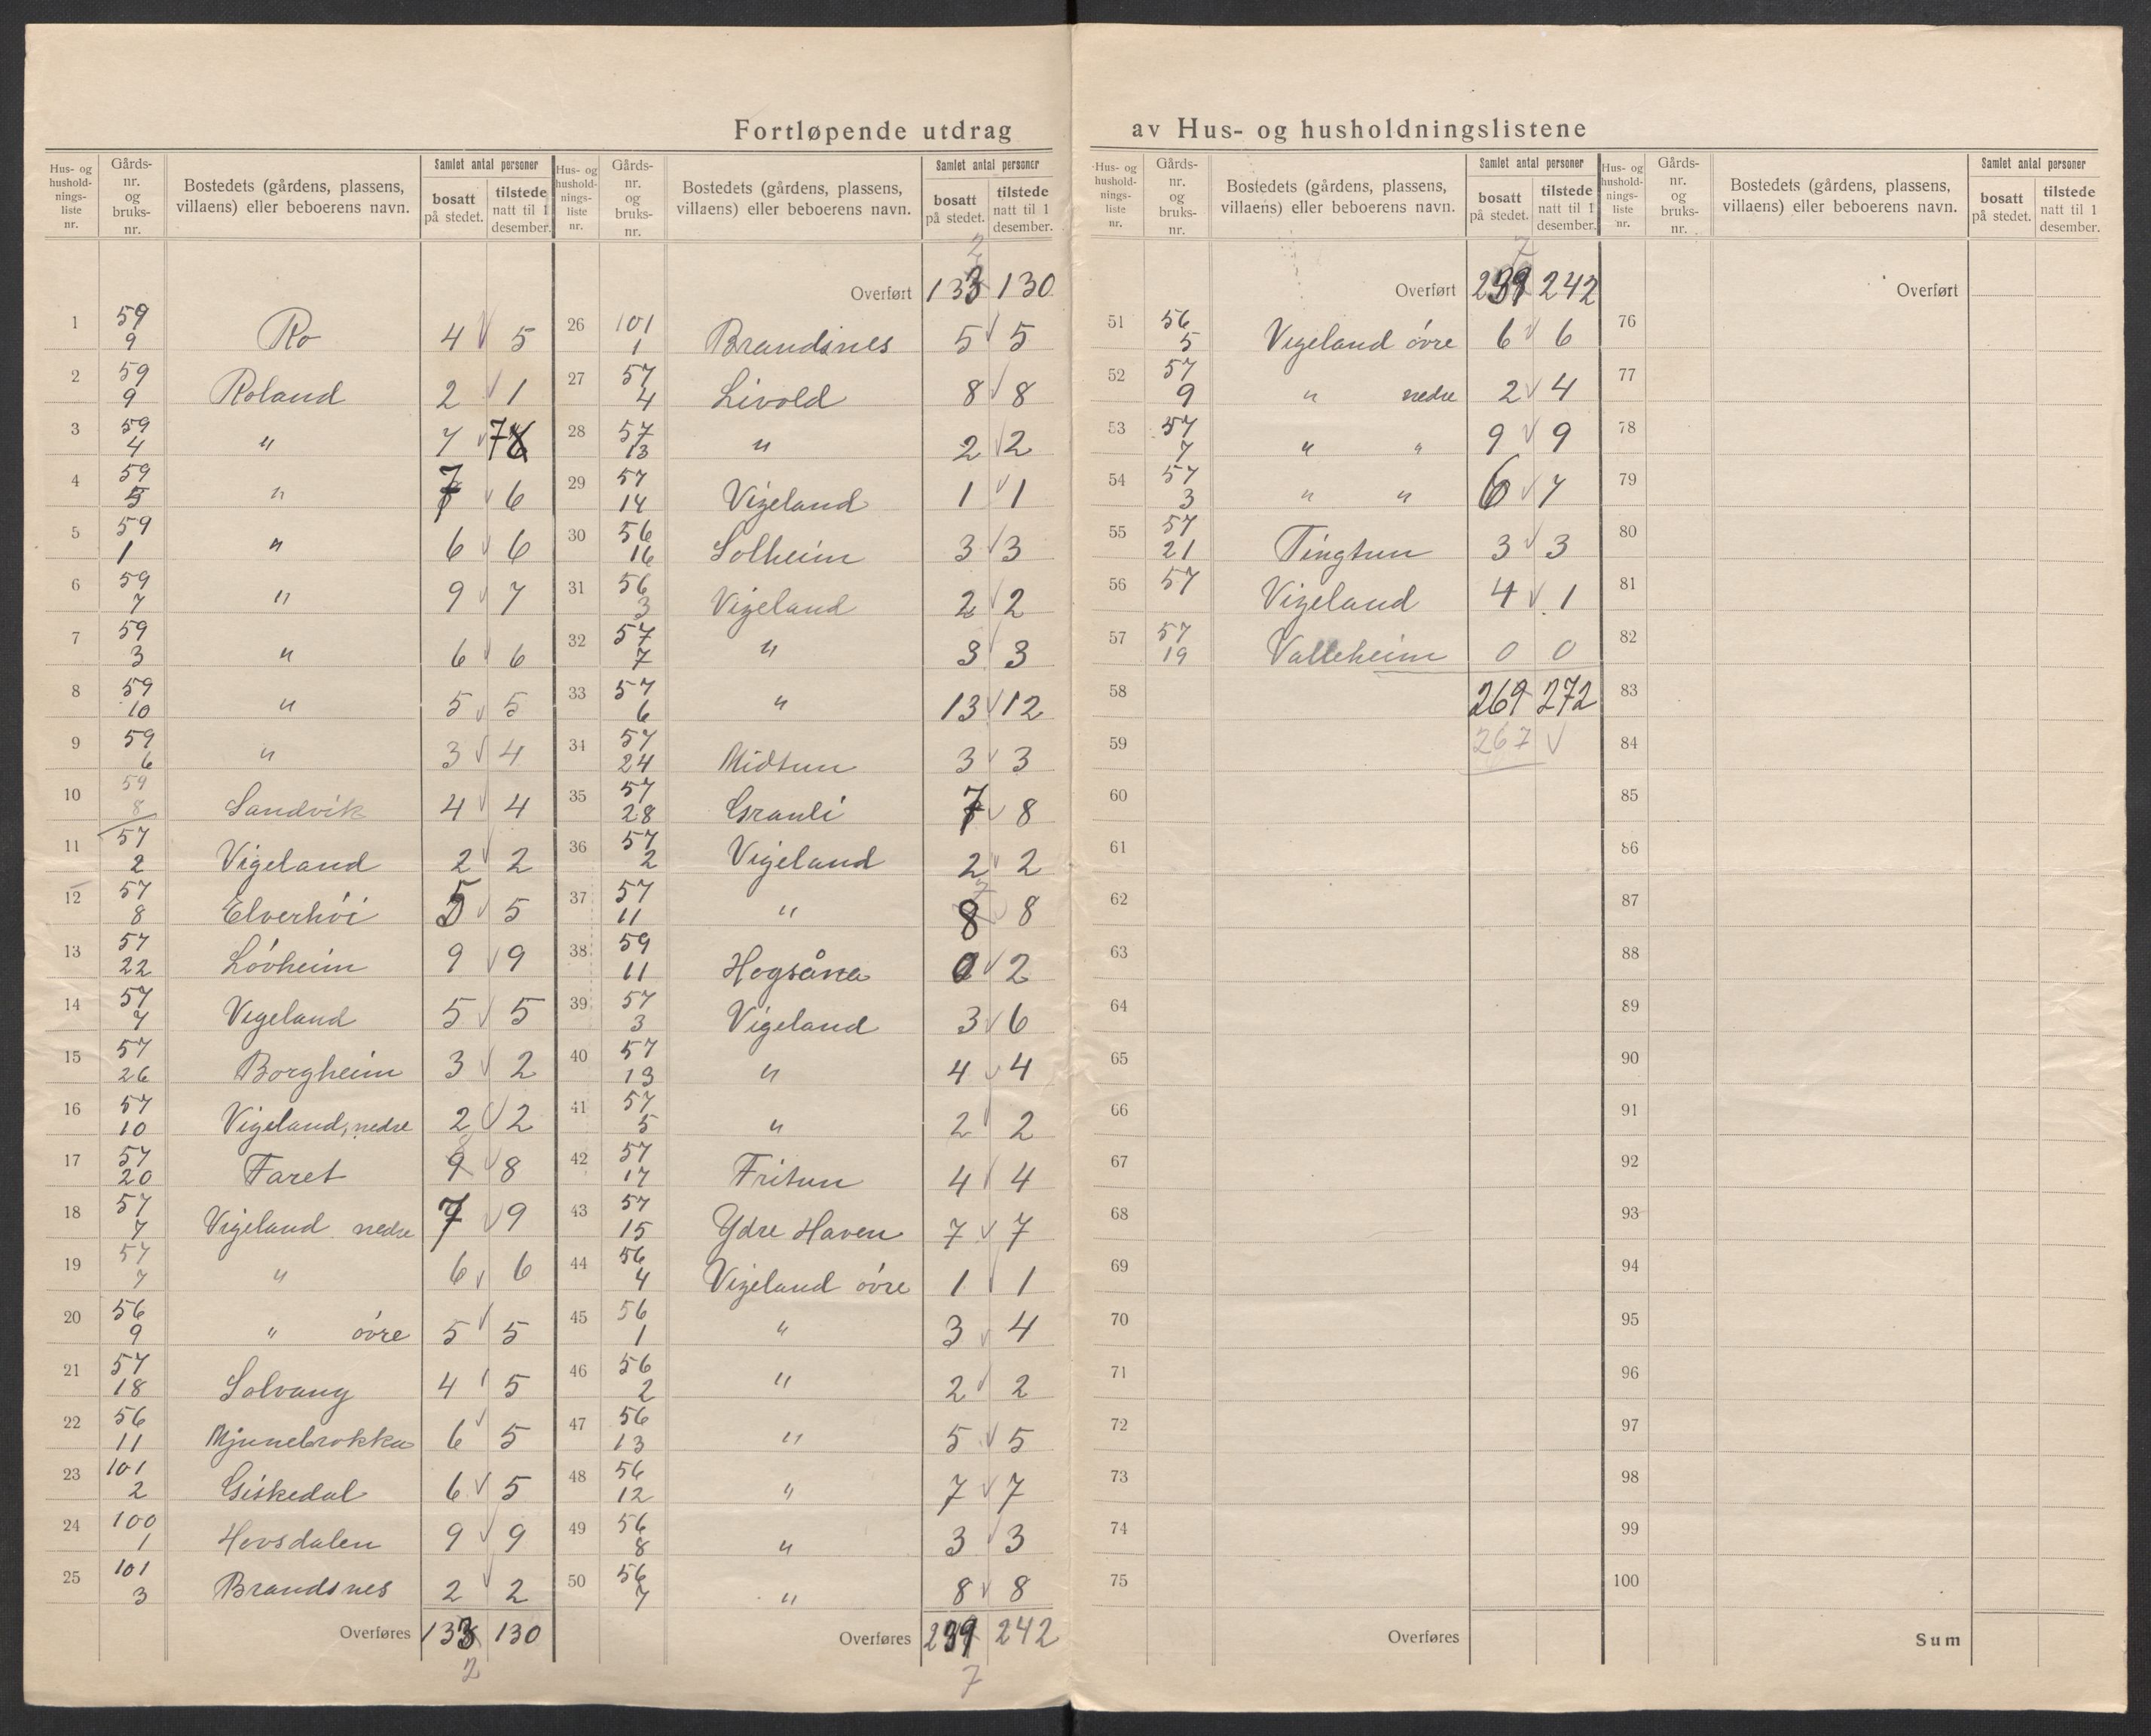 Fortløpende utdrag av Hus- og husholdningslistene
Hus- og hushold-nings-liste nr. | Gårds-nr. og bruks-nr. | Bostedets (gårdens, plassens, villaens) eller beboerens navn. | Samlet antal personer bosatt på stedet. | tilstede natt til 1 desember.
1 59 9 Ro 4 √ 5
2 59 9 Roland 2 √ 1
3 59 4 " 7 √ 7
4 59 5 " 7 √ 6
5 59 1 " 6 √ 6
6 59 7 " 9 √ 7
7 59 3 " 6 √ 6
8 59 10 " 5 √ 5
9 59 6 " 3 √ 4
10 59 8 Sandvik 4 √ 4
11 57 2 Vigeland 2 √ 2
12 57 8 Elverhöi 5 √ 5
13 57 22 Lövheim 9 √ 9
14 57 7 Vigeland 5 √ 5
15 57 26 Borgheim 3 √ 2
16 57 10 Vigeland, nedre 2 √ 2
17 57 20 Faret 9 8 √ 8
18 57 7 Vigeland nedre 7 √ 9
19 57 7 " 6 √ 6
20 56 9 " övre 5 √ 5
21 57 18 Solvang 4 √ 5
22 56 11 Mjunebrokka 6 √ 5
23 101 2 Giskedal 6 √ 5
24 100 1 Hovsdalen 9 √ 9
25 101 3 Brandsnes 2 √ 2
Overføres 133 130
2
Hus- og hushold-nings-liste nr. | Gårds-nr. og bruks-nr. | Bostedets (gårdens, plassens, villaens) eller beboerens navn. | Samlet antal personer bosatt på stedet. | tilstede natt til 1 desember.
2
Overført 133 130
26 101 1 Brandsnes 5 √ 5
27 57 4 Livold 8 √ 8
28 57 13 " 2 √ 2
29 57 14 Vigeland 1 √ 1
30 56 16 Solheim 3 √ 3
31 56 3 Vigeland 2 √ 2
32 57 7 " 3 √ 3
33 57 6 " 13 √ 12
34 57 24 Midtun 3 √ 3
35 57 28 Granli 7 √ 8
36 57 2 Vigeland 2 √ 2
37 57 11 " 8 7 √ 8
38 59 11 Hogsåna 0 √ 2
39 57 3 Vigeland 3 √ 6
40 57 13 " 4 √ 4
41 57 5 " 2 √ 2
42 57 17 Fritun 4 √ 4
43 57 15 Ydre Haven 7 √ 7
44 56 4 Vigeland övre 1 √ 1
45 56 1 " 3 √ 4
46 56 2 " 2 √ 2
47 56 13 " 5 √ 5
48 56 12 " 7 √ 7
49 56 8 " 3 √ 3
50 56 7 " 8 √ 8
Overføres 239 242
7
Hus- og hushold-nings-liste nr. | Gårds-nr. og bruks-nr. | Bostedets (gårdens, plassens, villaens) eller beboerens navn. | Samlet antal personer bosatt på stedet. | tilstede natt til 1 desember.
7
Overført 239 242
51 56 5 Vigeland övre 6 √ 6
52 57 9 " nedre 2 √ 4
53 57 7 " " 9 √ 9
54 57 3 " " 6 √ 7
55 57 21 Tingtun 3 √ 3
56 57 Vigeland 4 √ 1
57 57 19 Valleheim 0 0
58 269 272
59 267 √
60
61
62
63
64
65
66
67
68
69
70
71
72
73
74
75
Overføres
Hus- og hushold-nings-liste nr. | Gårds-nr. og bruks-nr. | Bostedets (gårdens, plassens, villaens) eller beboerens navn. | Samlet antal personer bosatt på stedet. | tilstede natt til 1 desember.
Overført
76
77
78
79
80
81
82
83
84
85
86
87
88
89
90
91
92
93
94
95
96
97
98
99
100
Sum